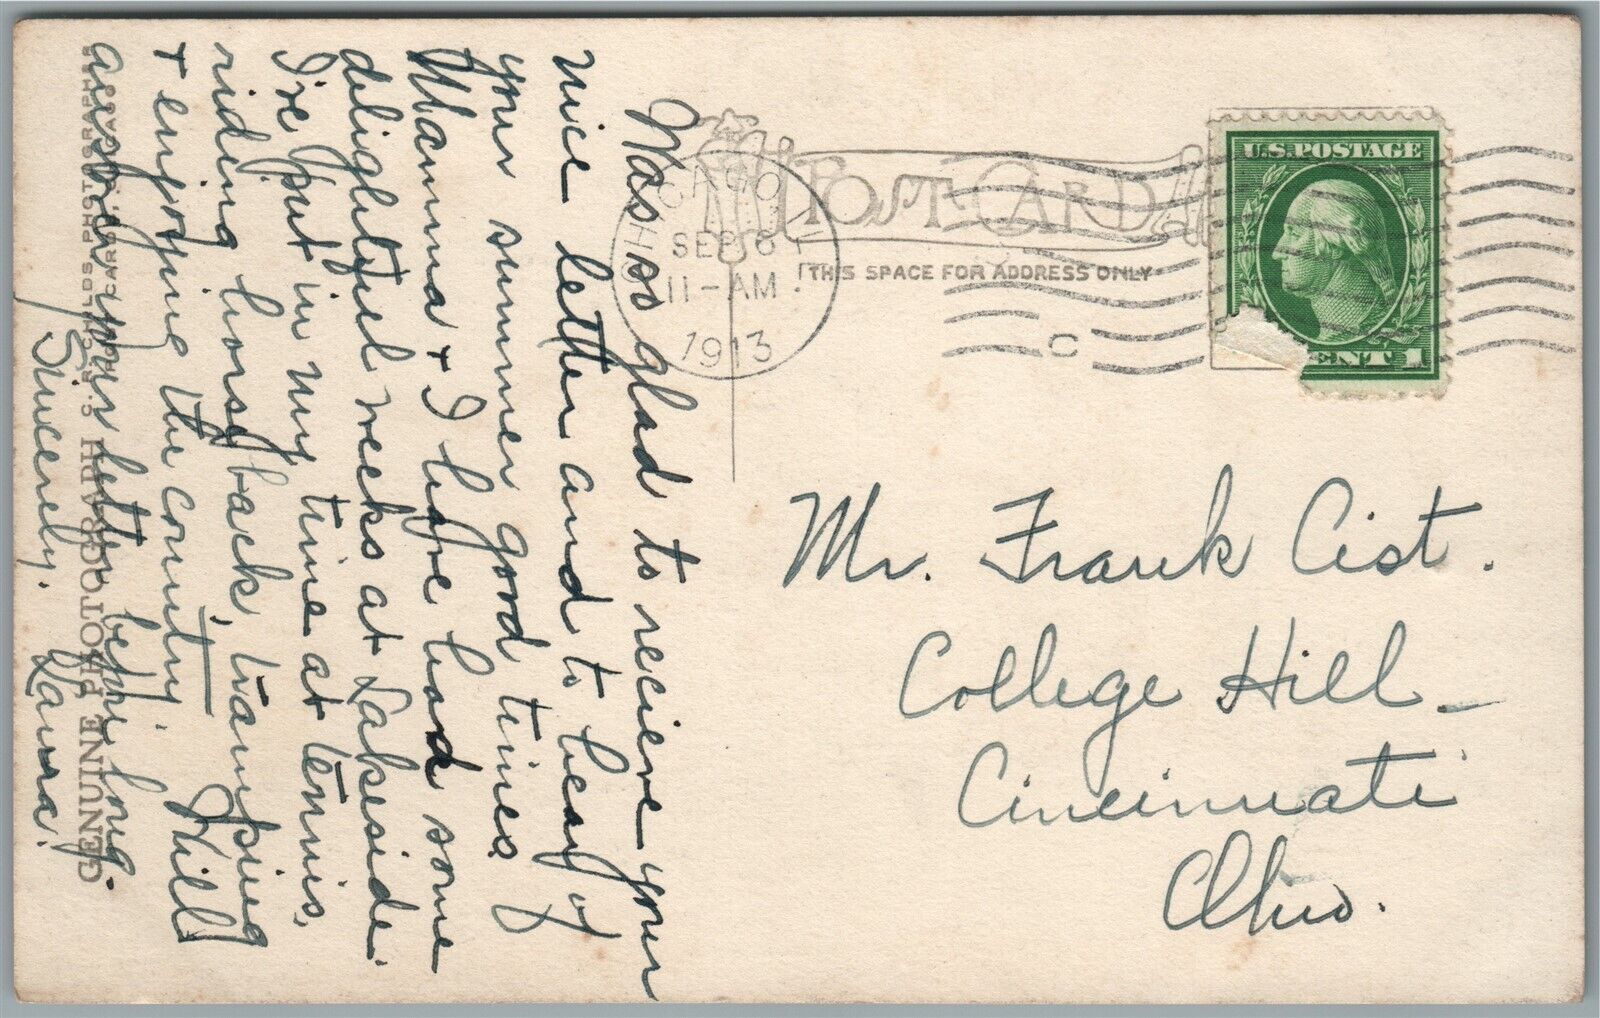 Was so glad to receive your
nice letter and to hear of
your summer good times.
Mamma + I have had some
delightful weeks at Lakeside.
I've put in my time at tennis,
riding horse back, tramping
+ enjoying the country. Will
answer your letter before long.
Sincerely. Laura.
GENUINE PHOTOGRAPH C. R. CHILDS PHOTOGRAPHER
CHICAGO, ILL.
SEP 6
11-AM
1913
POST CARD
THIS SPACE FOR ADDRESS ONLY
C
U.S.POSTAGE
ENT 1
Mr. Frank Cist.
College Hill –
Cincinnati
Ohio.